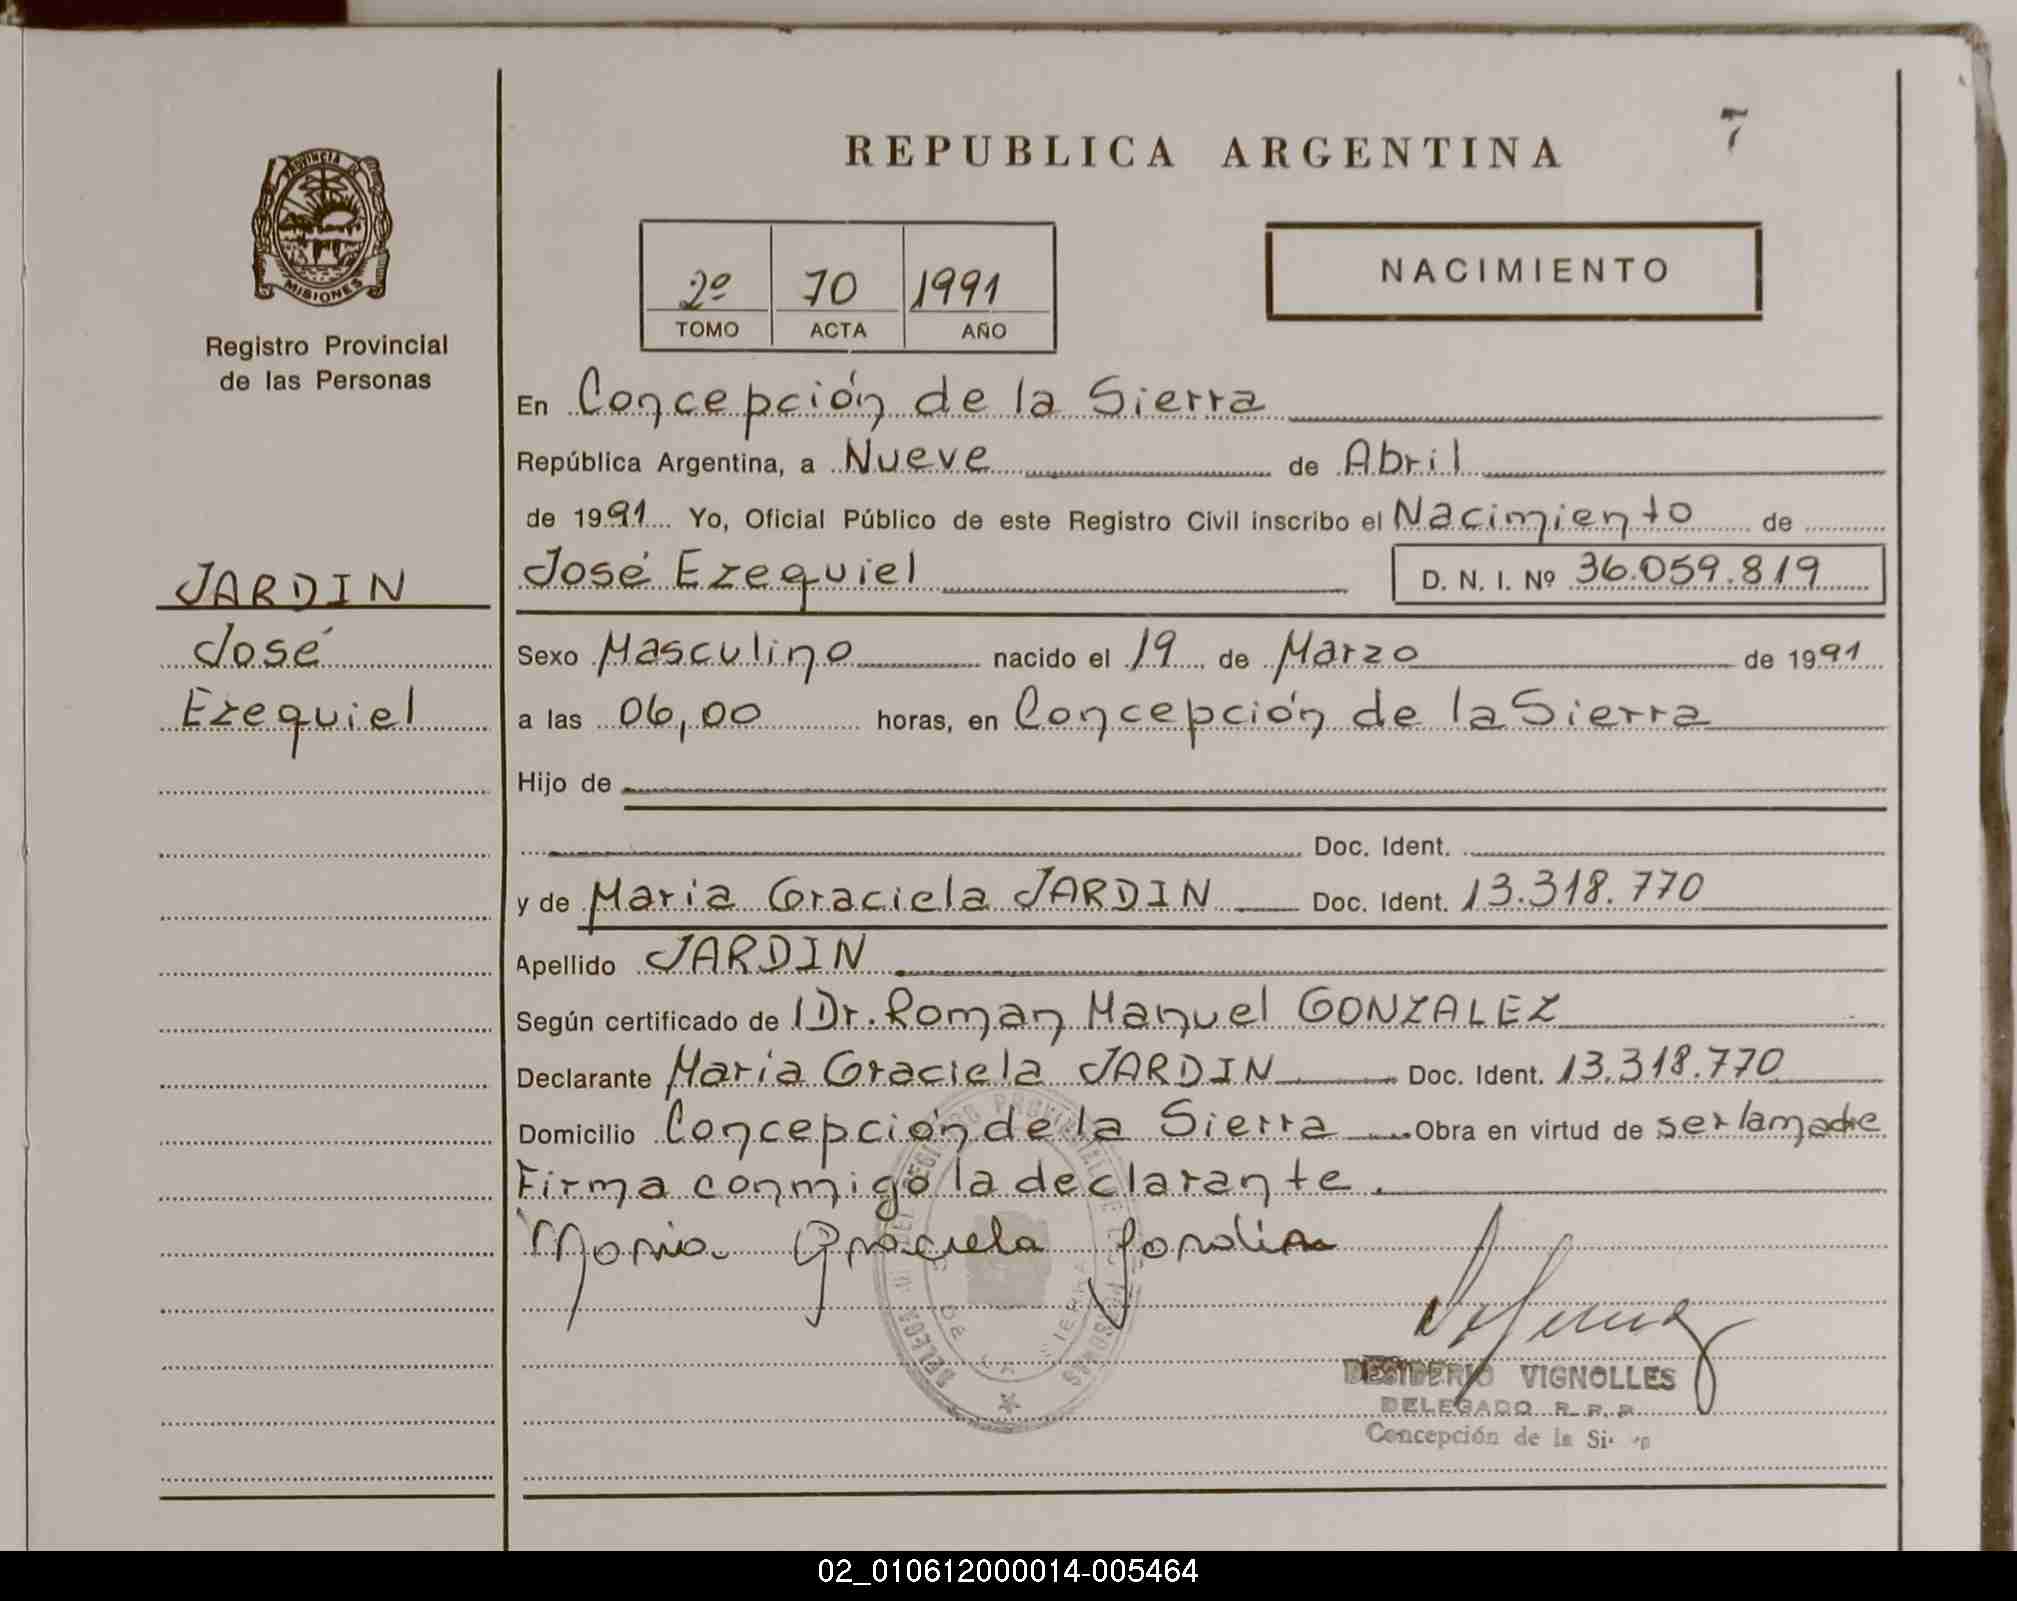 7
REPUBLICA ARGENTINA
PROVINCIA DE
MISIONES
Registro Provincial
de las Personas
2º 70 1991
TOMO ACTA AÑO
NACIMIENTO
En Concepción de la Sierra
República Argentina, a Nueve de Abril
de 1991 Yo, Oficial Público de este Registro Civil inscribo el Nacimiento de
José Ezequiel D. N. I. Nº 36.059.819
JARDIN
José
Ezequiel
Sexo Masculino nacido el 19 de Marzo de 1991
a las 06,00 horas, en Concepción de la Sierra
Hijo de
Doc. Ident.
y de Maria Graciela JARDIN Doc. Ident. 13.318.770
Apellido JARDIN
Según certificado de Dr. Roman Manuel GONZALEZ
Declarante Maria Graciela JARDIN Doc. Ident. 13.318.770
Domicilio Concepción de la Sierra Obra en virtud de ser la madre
Firma conmigo la declarante.
Maria Graciela Jardin
DESIDERIO VIGNOLLES
DELEGADO R. R. P.
Concepción de la
02_010612000014-005464